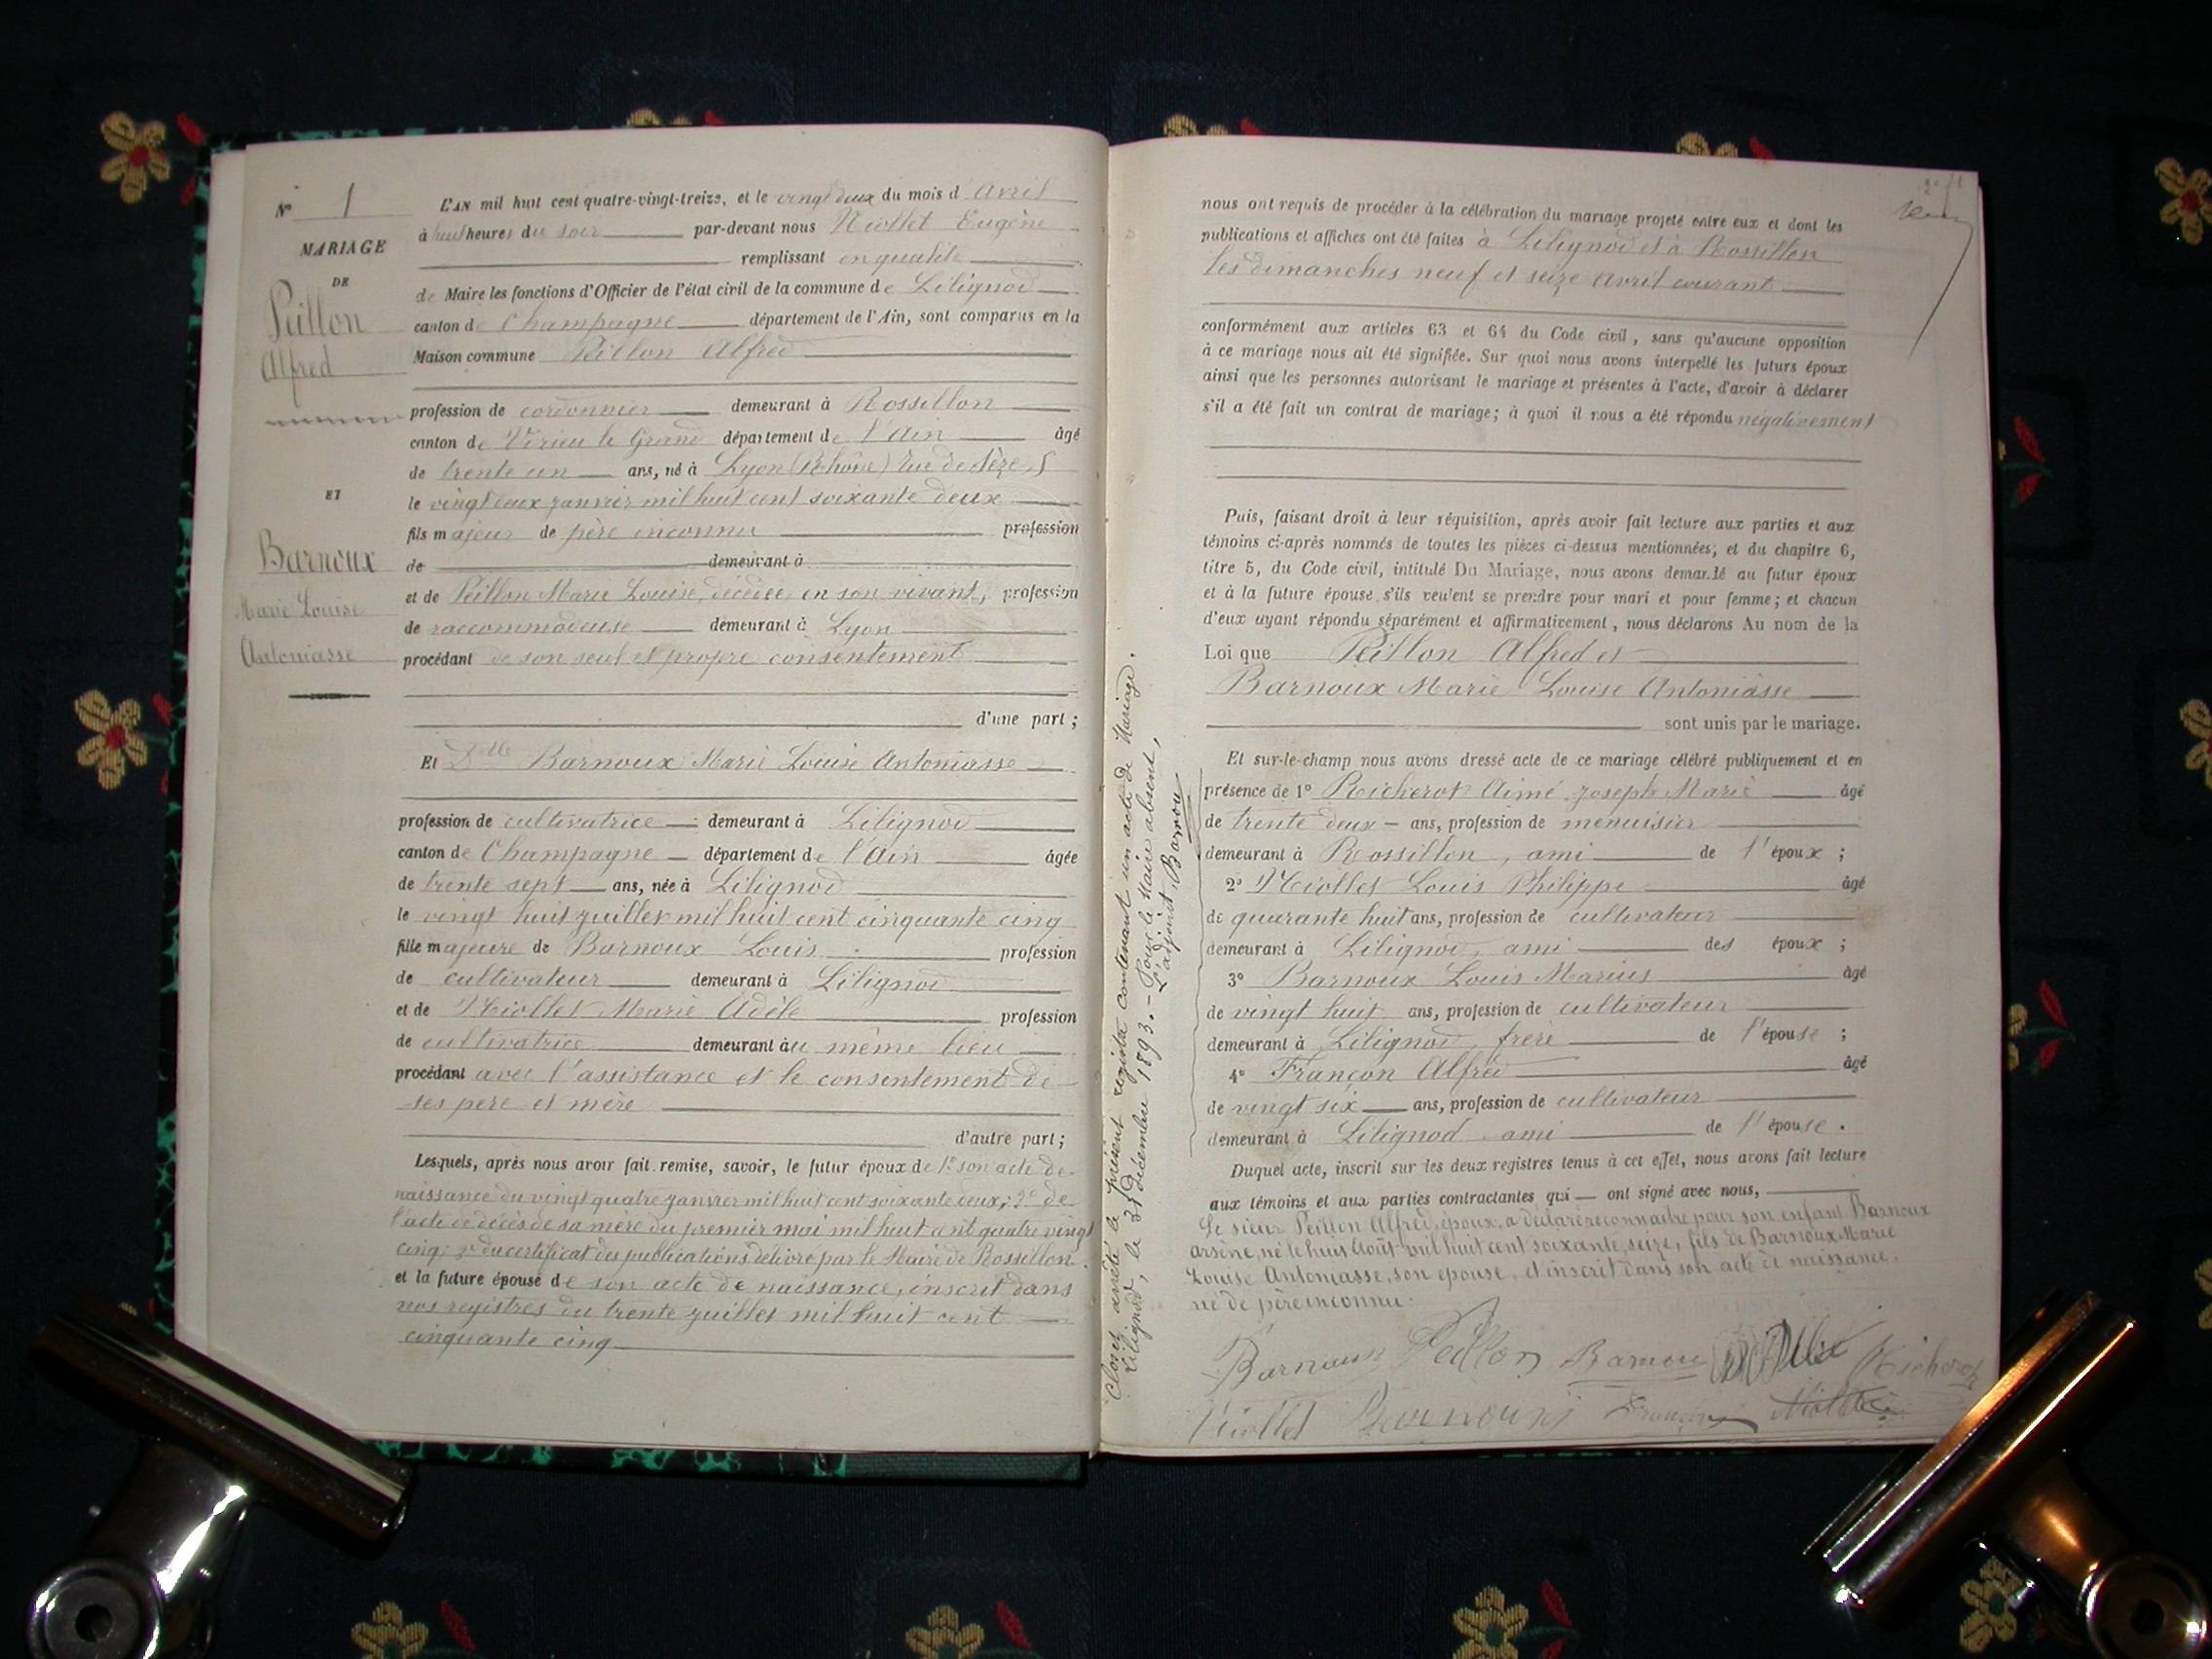 N° 1
MARIAGE
DE
Peillon
Alfred
ET
Barnoux
Marie Louise
Antoniasse
L'AN mil huit cent quatre-vingt-treize, et le vingt deux du mois d'Avril
à huit heures du soir par-devant nous Niollet Eugène
remplissant en qualité
de Maire les fonctions d'Officier de l'état civil de la commune de Lilignod
canton de Champagne département de l'Ain, sont comparus en la
Maison commune Peillon Alfred
profession de cordonnier demeurant à Rossillon
canton de Virieu le Grand département de l'Ain âgé
de trente un ans, né à Lyon (Rhône) rue de Sèze, 5
le vingt deux janvier mil huit cent soixante deux
fils majeur de père inconnu profession
de demeurant à
et de Peillon Marie Louise, décédée, en son vivant, profession
de raccommodeuse demeurant à Lyon
procédant de son seul et propre consentement
d'une part ;
Et Dlle Barnoux Marie Louise Antoniasse
profession de cultivatrice demeurant à Lilignod
canton de Champagne département de l'Ain âgée
de trente sept ans, née à Lilignod
le vingt huit juillet mil huit cent cinquante cinq
fille majeure de Barnoux Louis profession
de cultivateur demeurant à Lilignod
et de Niollet Marie Adèle profession
de cultivatrice demeurant au même lieu
procédant avec l'assistance et le consentement de
ses père et mère
d'autre part ;
Lesquels, après nous avoir fait remise, savoir, le futur époux de 1° son acte de
naissance du vingt quatre janvier mil huit cent soixante deux; 2° de
l'acte de décès de sa mère du premier mai mil huit cent quatre vingt
cinq; 3° du certificat des publications délivré par le Maire de Rossillon.
et la future épouse de son acte de naissance, inscrit dans
nos registres du trente juillet mil huit cent
cinquante cinq
Clos et arrêté le présent registre contenant un acte de Mariage.
Lilignod, le 31 décembre 1893. - Pour le Maire absent,
L'adjoint, Barnou
2e
nous ont requis de procéder à la célébration du mariage projeté entre eux et dont les
publications et affiches ont été faites à Lilignod et à Rossillon
les dimanches neuf et seize Avril courant
conformément aux articles 63 et 64 du Code civil, sans qu'aucune opposition
à ce mariage nous ait été signifiée. Sur quoi nous avons interpellé les futurs époux
ainsi que les personnes autorisant le mariage et présentes à l'acte, d'avoir à déclarer
s'il a été fait un contrat de mariage ; à quoi il nous a été répondu négativement
Puis, faisant droit à leur réquisition, après avoir fait lecture aux parties et aux
témoins ci-après nommés de toutes les pièces ci-dessus mentionnées, et du chapitre 6,
titre 5, du Code civil, intitulé Du Mariage, nous avons demandé au futur époux
et à la future épouse s'ils veulent se prendre pour mari et pour femme ; et chacun
d'eux ayant répondu séparément et affirmativement, nous déclarons Au nom de la
Loi que Peillon Alfred et
Barnoux Marie Louise Antoniasse
sont unis par le mariage.
Et sur-le-champ nous avons dressé acte de ce mariage célébré publiquement et en
présence de 1° Richerot Aimé Joseph Marie âgé
de trente deux ans, profession de menuisier
demeurant à Rossillon, ami de l'époux ;
2° Niollet Louis Philippe âgé
de quarante huit ans, profession de cultivateur
demeurant à Lilignod, ami des époux ;
3° Barnoux Louis Marius âgé
de vingt huit ans, profession de cultivateur
demeurant à Lilignod, frère de l'épouse ;
4° Françon Alfred âgé
de vingt six ans, profession de cultivateur
demeurant à Lilignod ami de l'épouse.
Duquel acte, inscrit sur les deux registres tenus à cet effet, nous avons fait lecture
aux témoins et aux parties contractantes qui ont signé avec nous,
Le sieur Peillon Alfred, époux, a déclaré reconnaître pour son enfant Barnoux
Arsène, né le huit Août mil huit cent soixante seize, fils de Barnoux Marie
Louise Antoniasse, son épouse, et inscrit dans son acte de naissance,
né de père inconnu.
Barnoux Peillon Barnou Richerot
Niollet Barnoux Françon Niollet